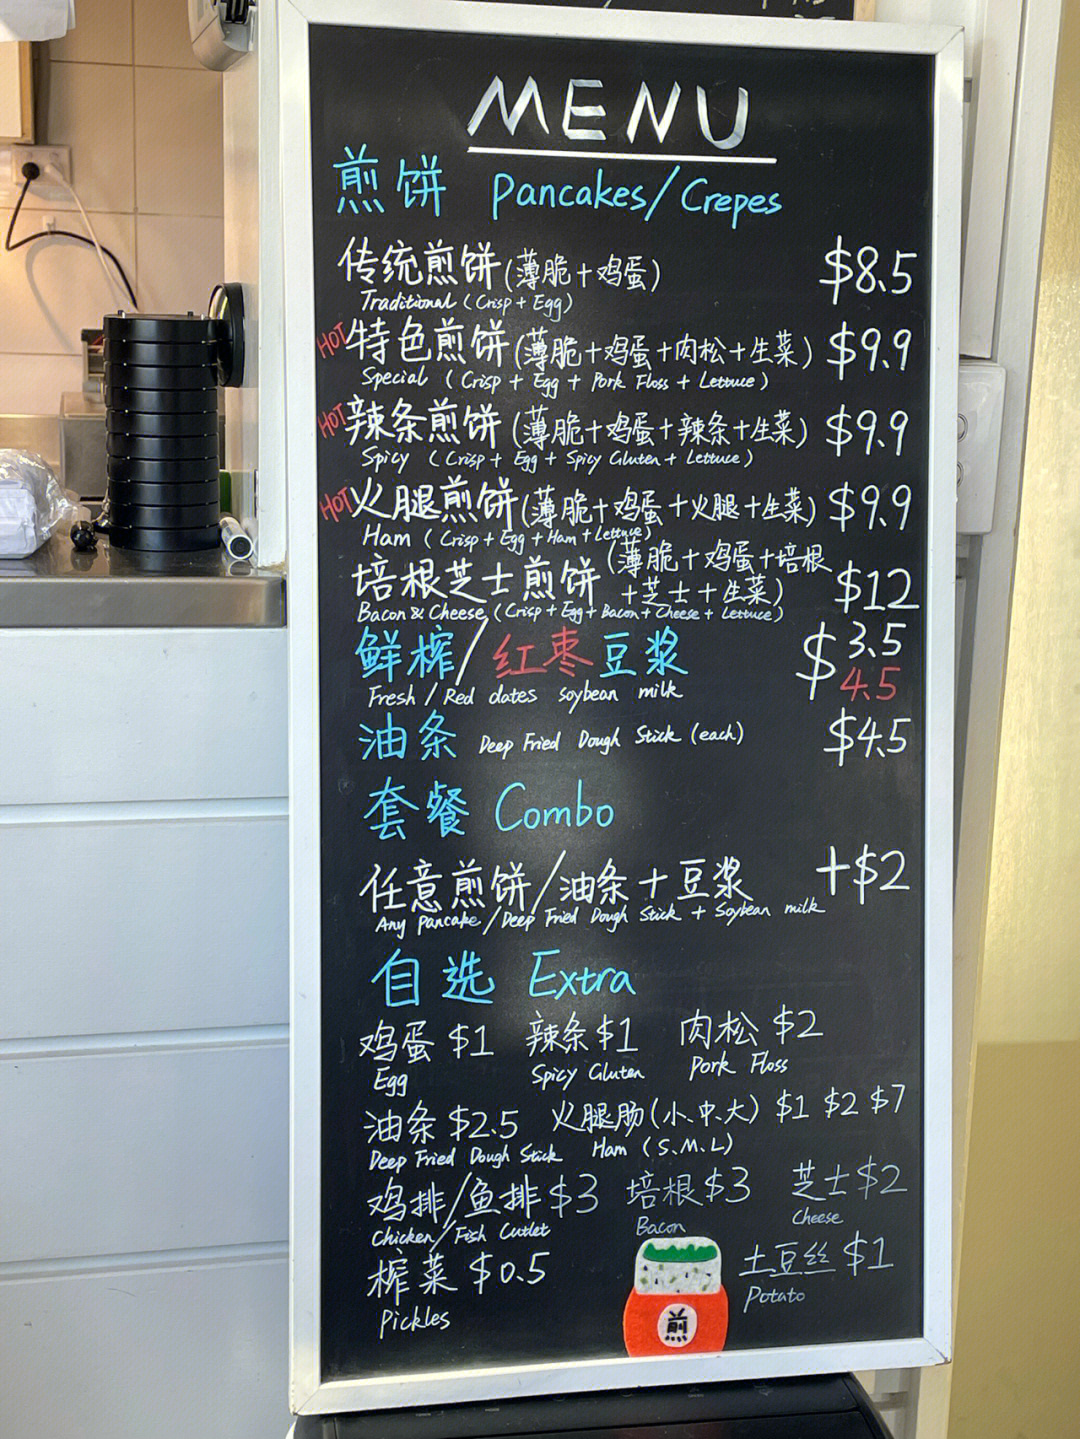 MENU
煎饼 Pancakes/Crepes
传统煎饼(薄脆+鸡蛋) $8.5
Traditional (Crisp + Egg)
HOT 特色煎饼(薄脆+鸡蛋+肉松+生菜) $9.9
Special (Crisp + Egg + Pork Floss + Lettuce)
HOT 辣条煎饼(薄脆+鸡蛋+辣条+生菜) $9.9
Spicy (Crisp + Egg + Spicy Gluten + Lettuce)
HOT 火腿煎饼(薄脆+鸡蛋+火腿+生菜) $9.9
Ham (Crisp + Egg + Ham + Lettuce)
培根芝士煎饼 (薄脆+鸡蛋+培根
+芝士+生菜) $12
Bacon & Cheese (Crisp + Egg + Bacon + Cheese + Lettuce)
鲜榨/红枣豆浆 $3.5
4.5
Fresh / Red dates soybean milk
油条 Deep Fried Dough Stick (each) $4.5
套餐 Combo
任意煎饼/油条+豆浆 +$2
Any pancake/Deep Fried Dough Stick + Soybean milk
自选 Extra
鸡蛋 $1 辣条 $1 肉松 $2
Egg Spicy Gluten Pork Floss
油条 $2.5 火腿肠(小.中.大) $1 $2 $7
Deep Fried Dough Stick Ham (S.M.L)
鸡排/鱼排 $3 培根 $3 芝士 $2
Chicken/Fish Cutlet Bacon Cheese
榨菜 $0.5 土豆丝 $1
Pickles Potato
煎